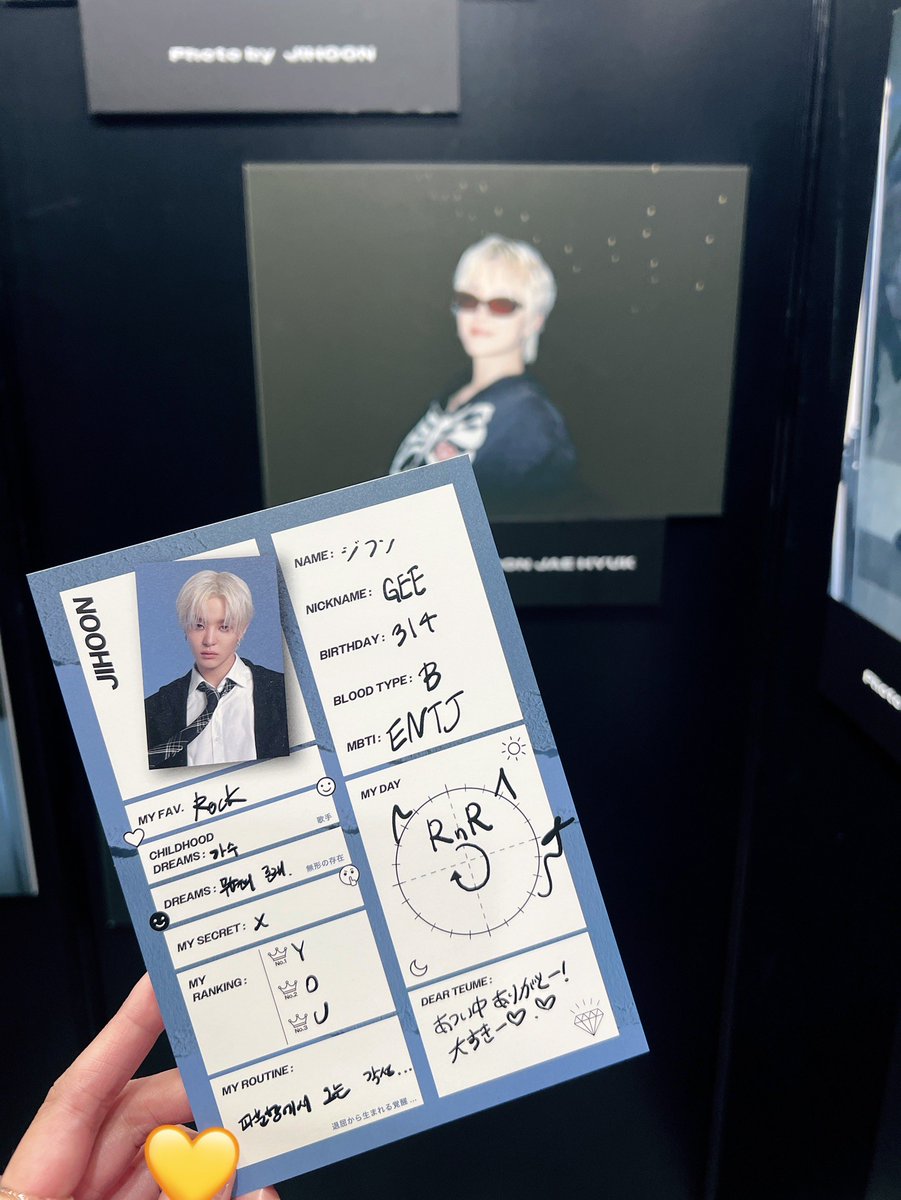 Photo by JIHOON
ON JAE HYUK
JIHOON
NAME: ジフン
NICKNAME: GEE
BIRTHDAY: 314
BLOOD TYPE: B
MBTI: ENTJ
MY FAV. Rock
CHILDHOOD
DREAMS: 가수
歌手
DREAMS: 무형의 존재.
無形の存在
MY SECRET: X
MY
RANKING:
No.1 Y
No.2 O
No.3 U
MY ROUTINE:
따분함에서 오는 각성...
退屈から生まれる覚醒...
MY DAY
RnR
DEAR TEUME:
あつい中ありがとー!
大すきー♡.♡